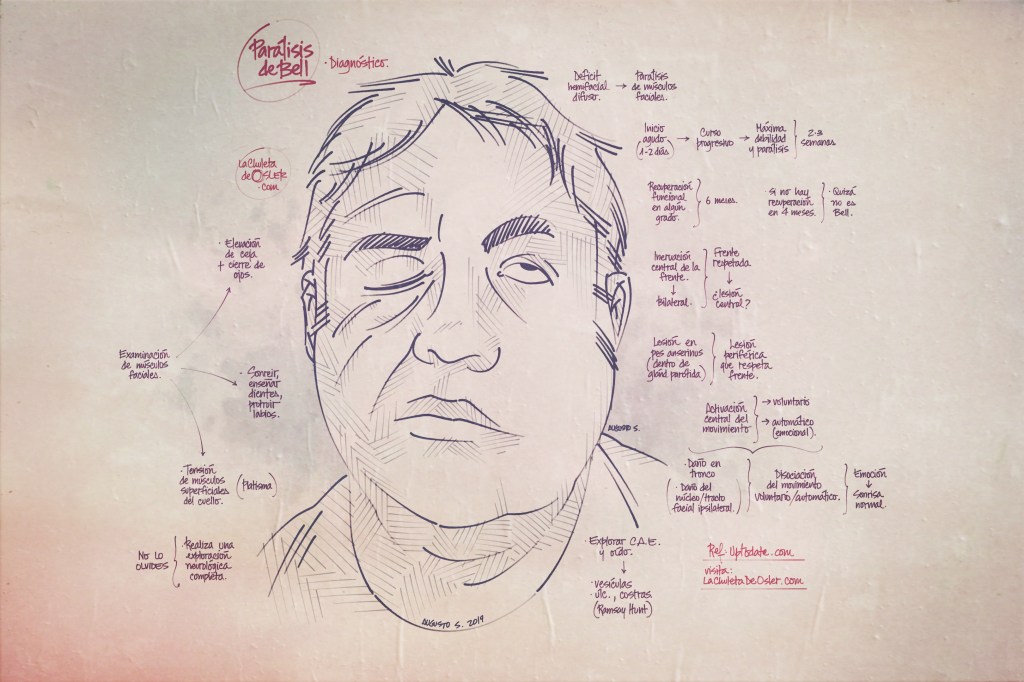 Parálisis
de Bell
· Diagnóstico.
LaChuleta
deOSLER
.com
Déficit
hemifacial
difuso. → Parálisis
de músculos
faciales.
Inicio
agudo
(1-2 días) → Curso
progresivo → Máxima
debilidad
y parálisis
2-3
semanas
Recuperación
funcional
en algún
grado.
6 meses.
· Si no hay
recuperación
en 4 meses.
· Quizá
no es
Bell.
Inervación
central de la
frente.
↓
Bilateral.
Frente
respetada
↓
¿lesión
central?
Lesión en
pes anserinus
(dentro de
gland parótida)
Lesión
periférica
que respeta
frente.
Activación
central del
movimiento
→ voluntario
→ automático
(emocional).
· Daño en
tronco
· Daño del
núcleo/tracto
facial ipsilateral.
Disociación
del movimiento
voluntario/automático.
Emoción
↓
Sonrisa
normal.
· Elevación
de ceja
+ cierre de
ojos.
Examinación
de músculos
faciales.
· Sonreir,
enseñar
dientes,
protruir
labios.
· Tensión
de músculos
superficiales
del cuello.
(Platisma)
NO LO
OLVIDES
· Realiza una
exploración
neurológica
completa.
AUGUSTO S.
· Explorar C.A.E.
y oído.
↓
· vesículas
· ulc., costras.
(Ramsay Hunt)
Ref. Uptodate.com
visita:
LaChuletaDeOsler.com
AUGUSTO S. 2019